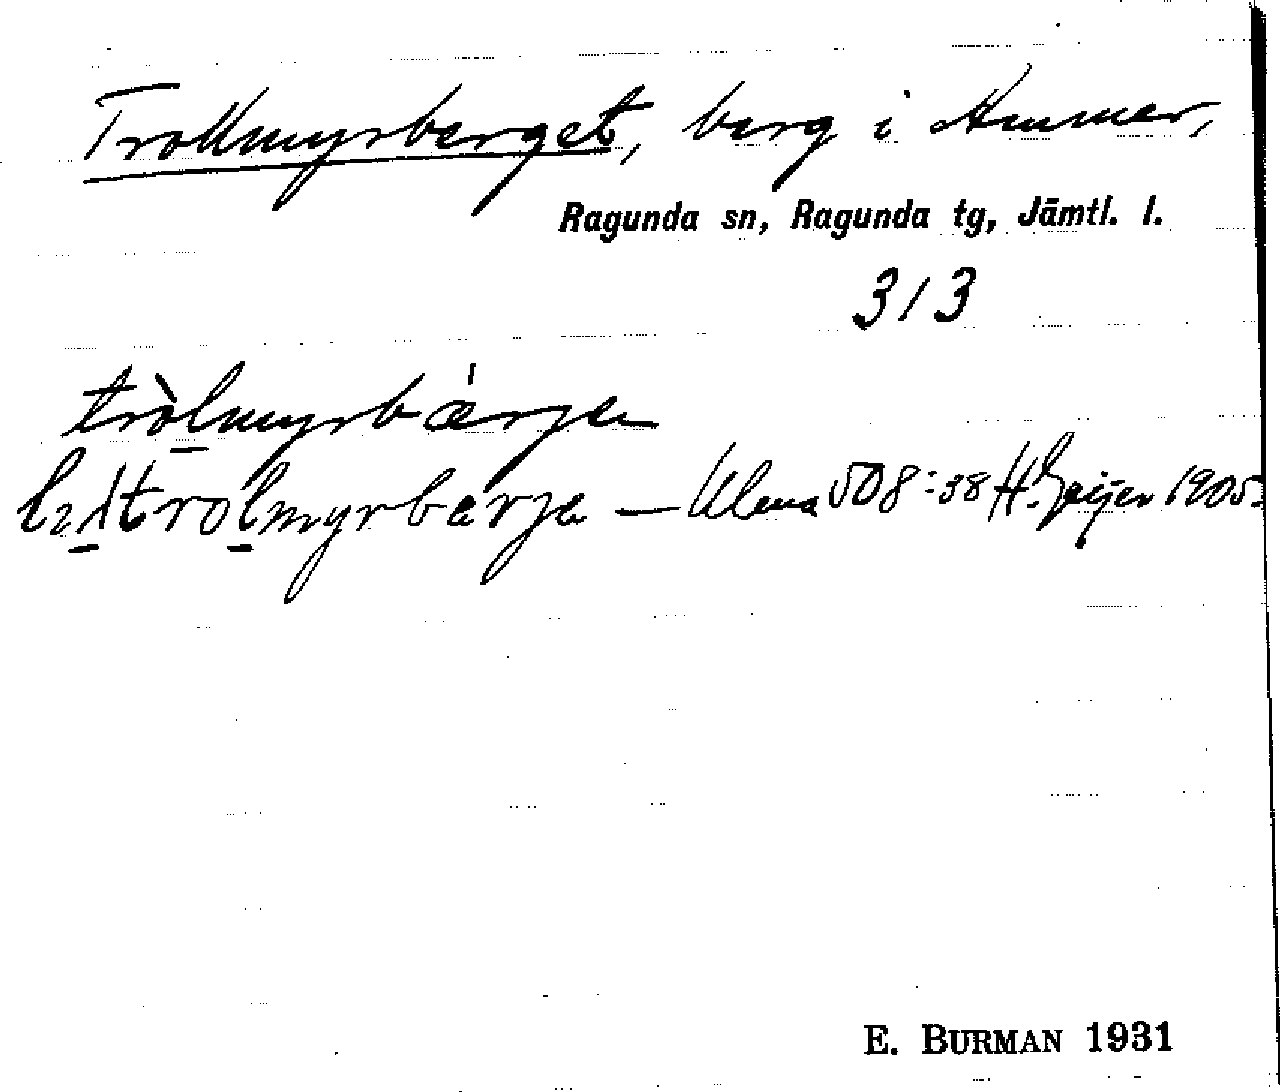 Trollmyrberget, berg i Ammer,
Ragunda sn, Ragunda tg, Jämtl. l.
313
tròlmyrbǽrje
trolmyrbærje — Ulma 508:38 H. Geijer 1905.
E. BURMAN 1931